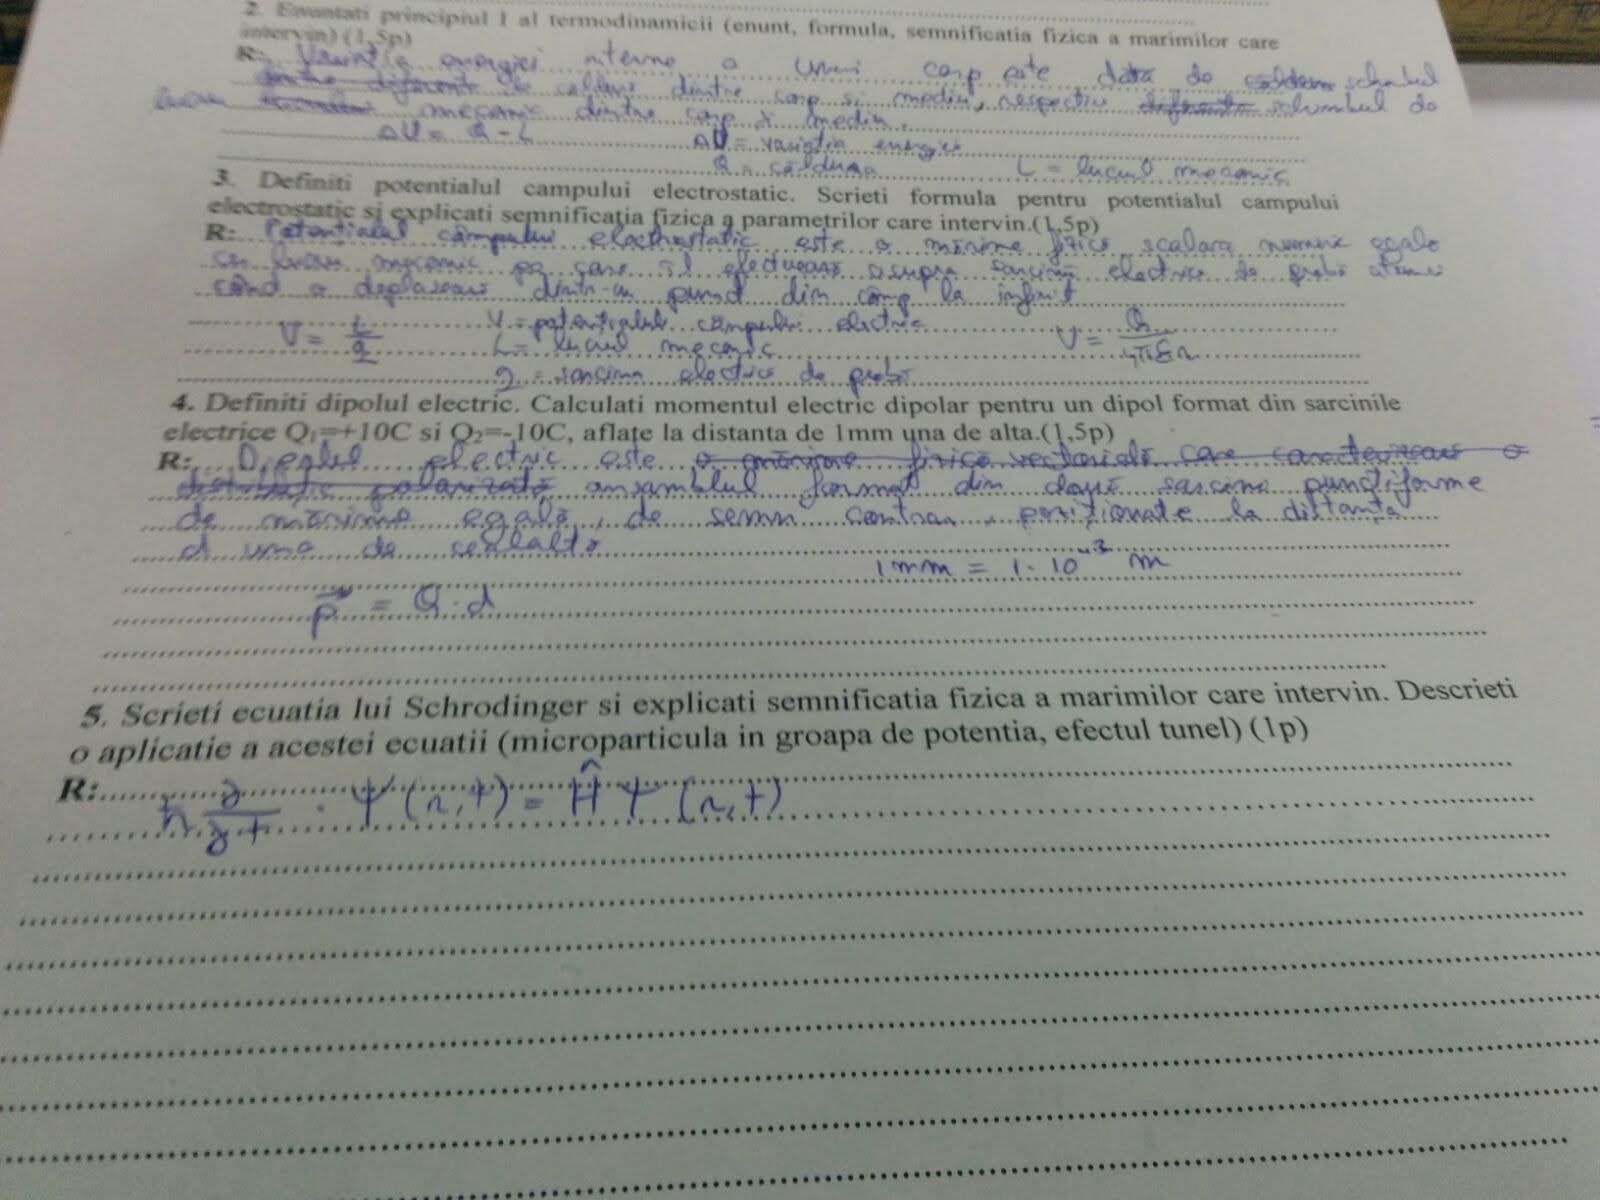 2. Enuntati principiul I al termodinamicii (enunt, formula, semnificatia fizica a marimilor care
intervin) (1,5p)
R: Variatia energiei interne a unui corp este data de caldura schimbul
dintre diferent de caldura dintre corp si mediu, respectiv diferenta schimbul de
lucru mecanic dintre corp si mediu.
ΔU = Q - L ΔU = variatia energiei
Q = căldura L = lucrul mecanic
3. Definiti potentialul campului electrostatic. Scrieti formula pentru potentialul campului
electrostatic si explicati semnificatia fizica a parametrilor care intervin.(1,5p)
R: Potentialul câmpului electrostatic este o mărime fizică scalara numeric egală
cu lucru mecanic pe care îl efectuează asupra sarcinii electrice de probă atunci
când o deplasează dintr-un punct din câmp la infinit
V = L/q V = potentialul câmpului electric V = Q/4πεr
L = lucrul mecanic
q = sarcina electrică de probă
4. Definiti dipolul electric. Calculati momentul electric dipolar pentru un dipol format din sarcinile
electrice Q₁=+10C si Q₂=-10C, aflate la distanta de 1mm una de alta.(1,5p)
R: Dipolul electric este o mărime fizică vectorială care caracterizează o
distributie polarizată ansamblul format din două sarcini punctiforme
de mărime egală, de semn contrar, pozitionate la distanta
d una de cealaltă
1mm = 1·10⁻³ m
p⃗ = Q·d
5. Scrieti ecuatia lui Schrodinger si explicati semnificatia fizica a marimilor care intervin. Descrieti
o aplicatie a acestei ecuatii (microparticula in groapa de potentia, efectul tunel) (1p)
R: ħ ∂/∂t · Ψ(r,t) = Ĥ Ψ(r,t)